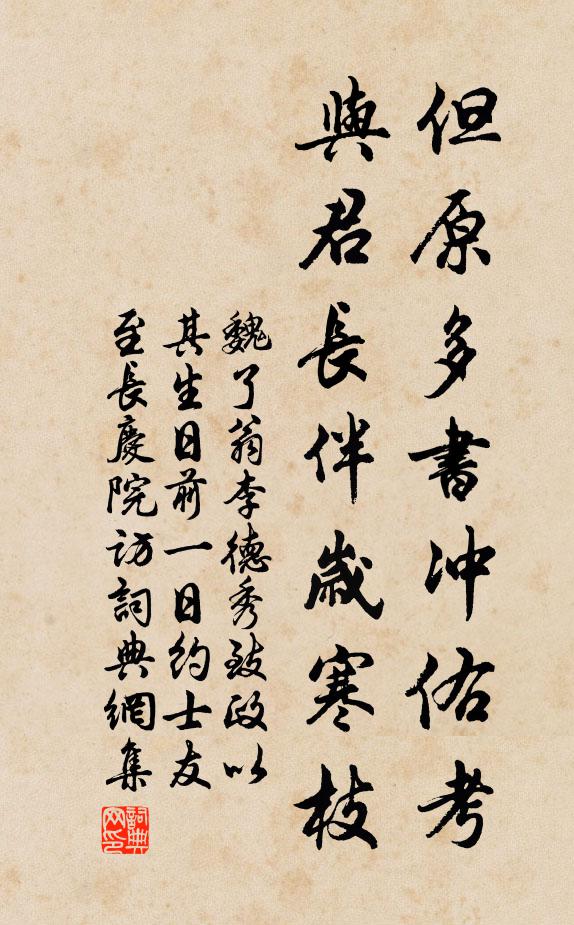 但原多書冲佑考
與君長伴歲寒枝
魏了翁李德秀致政以
其生日前一日約士友
至長慶院訪詞典網集
詞典
网印